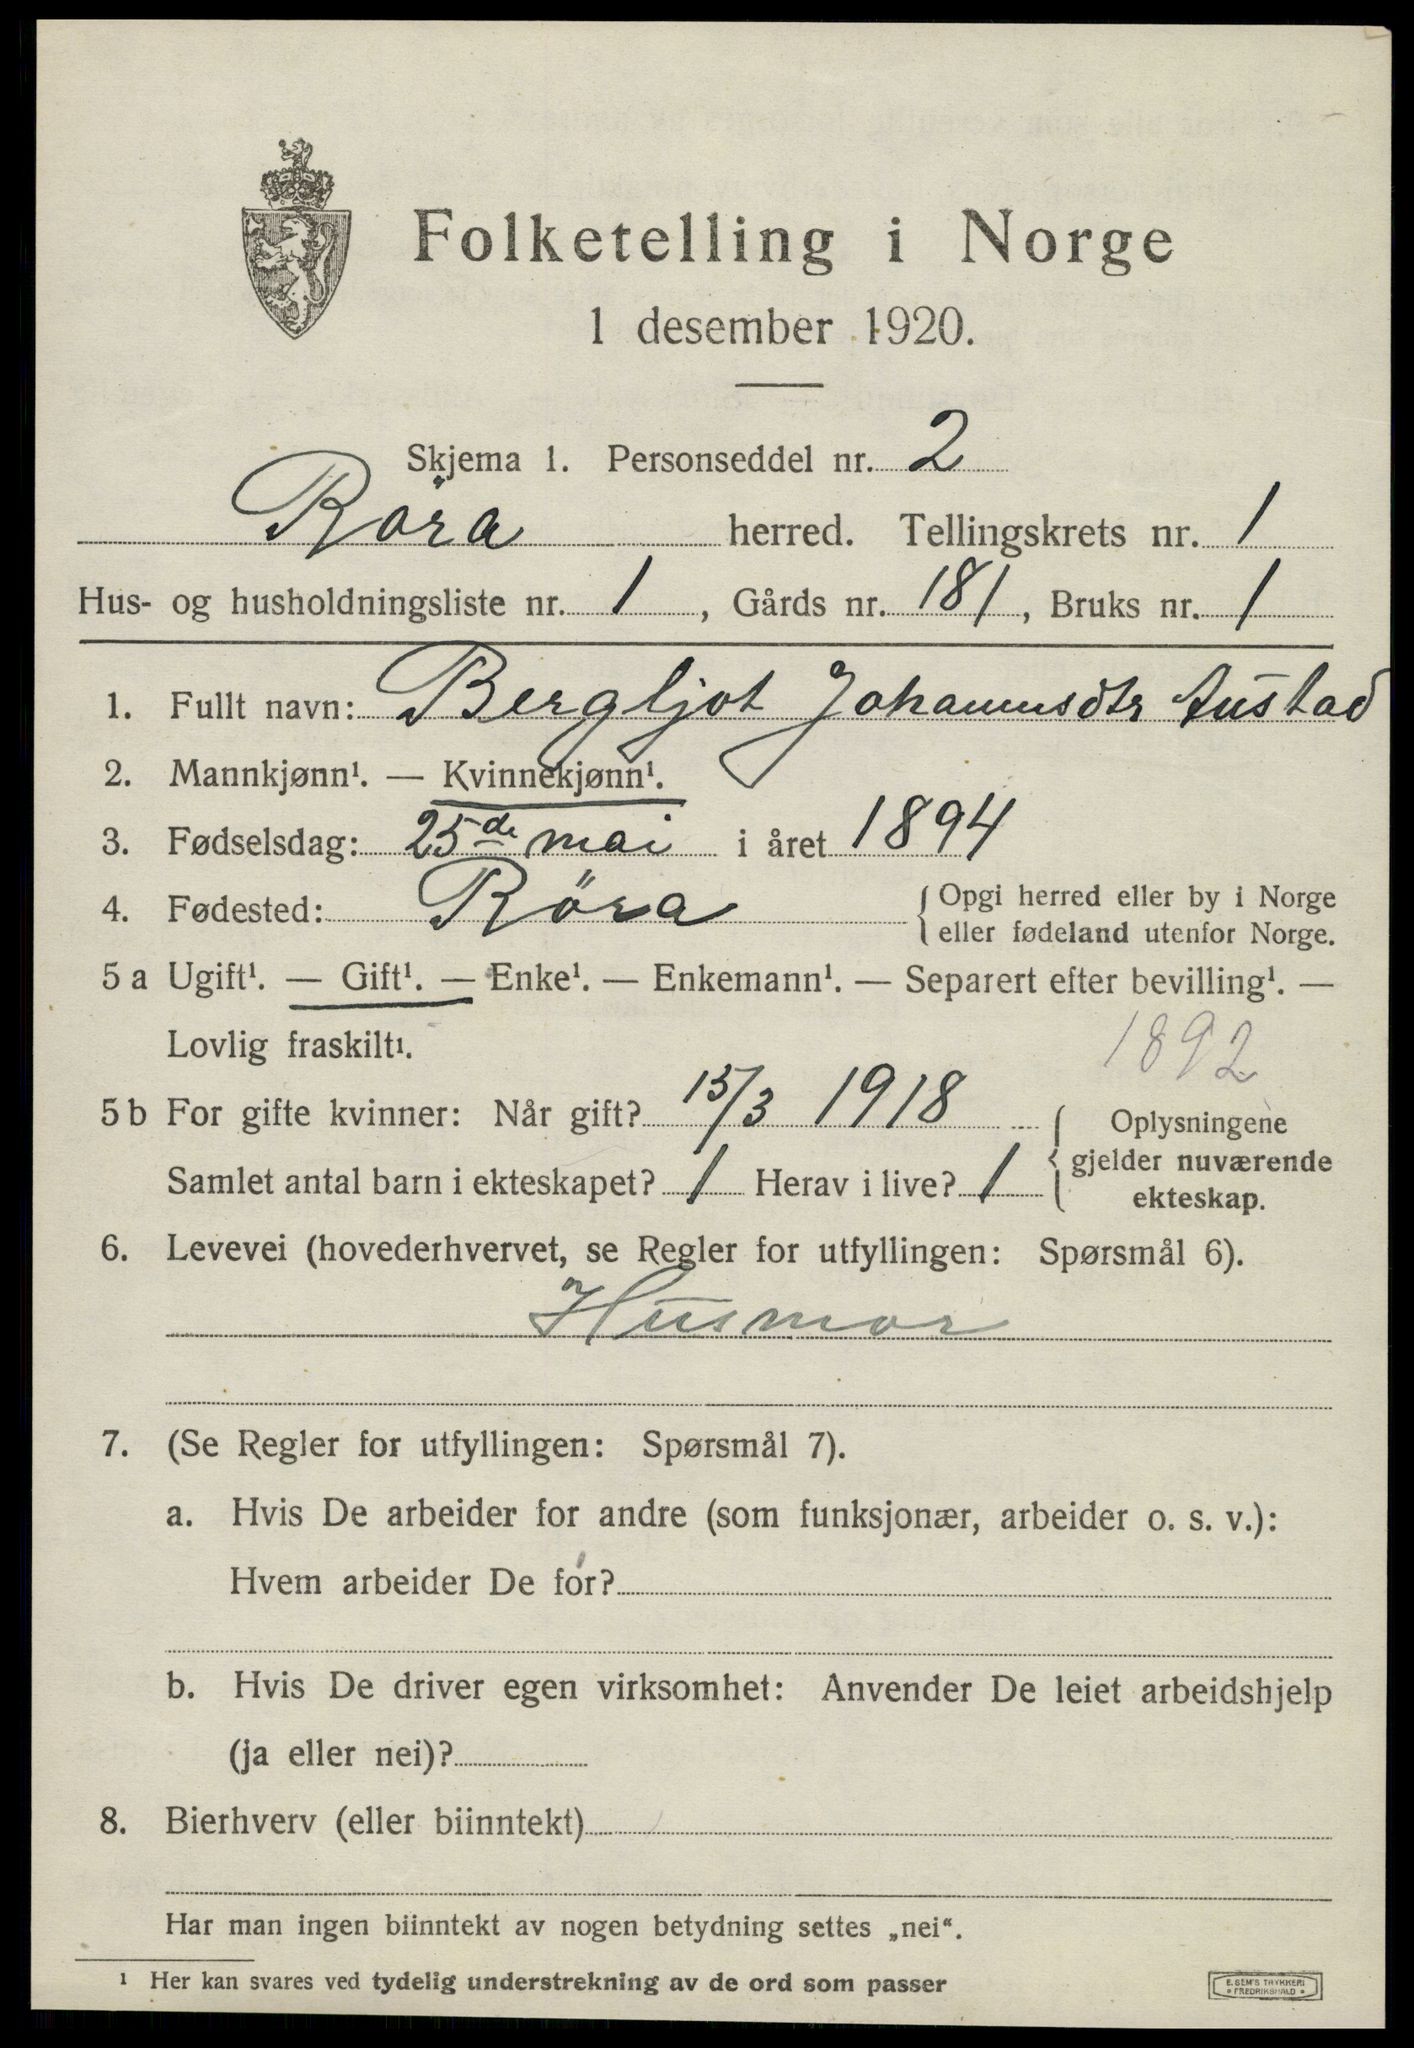 Folketelling i Norge
1 desember 1920.
Skjema 1. Personseddel nr. 2
Röra herred. Tellingskrets nr. 1
Hus- og husholdningsliste nr. 1, Gårds nr. 181, Bruks nr. 1
1. Fullt navn: Bergljot Johannesdtr Austad
2. Mannkjønn¹. — Kvinnekjønn¹.
3. Fødselsdag: 25de mai i året 1894
4. Fødested: Röra { Opgi herred eller by i Norge
eller fødeland utenfor Norge.
5 a Ugift¹. — Gift¹. — Enke¹. — Enkemann¹. — Separert efter bevilling¹. —
Lovlig fraskilt¹.
1892
5 b For gifte kvinner: Når gift? 15/3 1918 { Oplysningene
gjelder nuværende
ekteskap.
Samlet antal barn i ekteskapet? 1 Herav i live? 1
6. Levevei (hovederhvervet, se Regler for utfyllingen: Spørsmål 6).
Husmor
7. (Se Regler for utfyllingen: Spørsmål 7).
a. Hvis De arbeider for andre (som funksjonær, arbeider o. s. v.):
Hvem arbeider De for?
b. Hvis De driver egen virksomhet: Anvender De leiet arbeidshjelp
(ja eller nei)?
8. Bierhverv (eller biinntekt)
Har man ingen biinntekt av nogen betydning settes „nei“.
¹ Her kan svares ved tydelig understrekning av de ord som passer
E. SEM'S TRYKKERI
• FREDRIKSHALD •